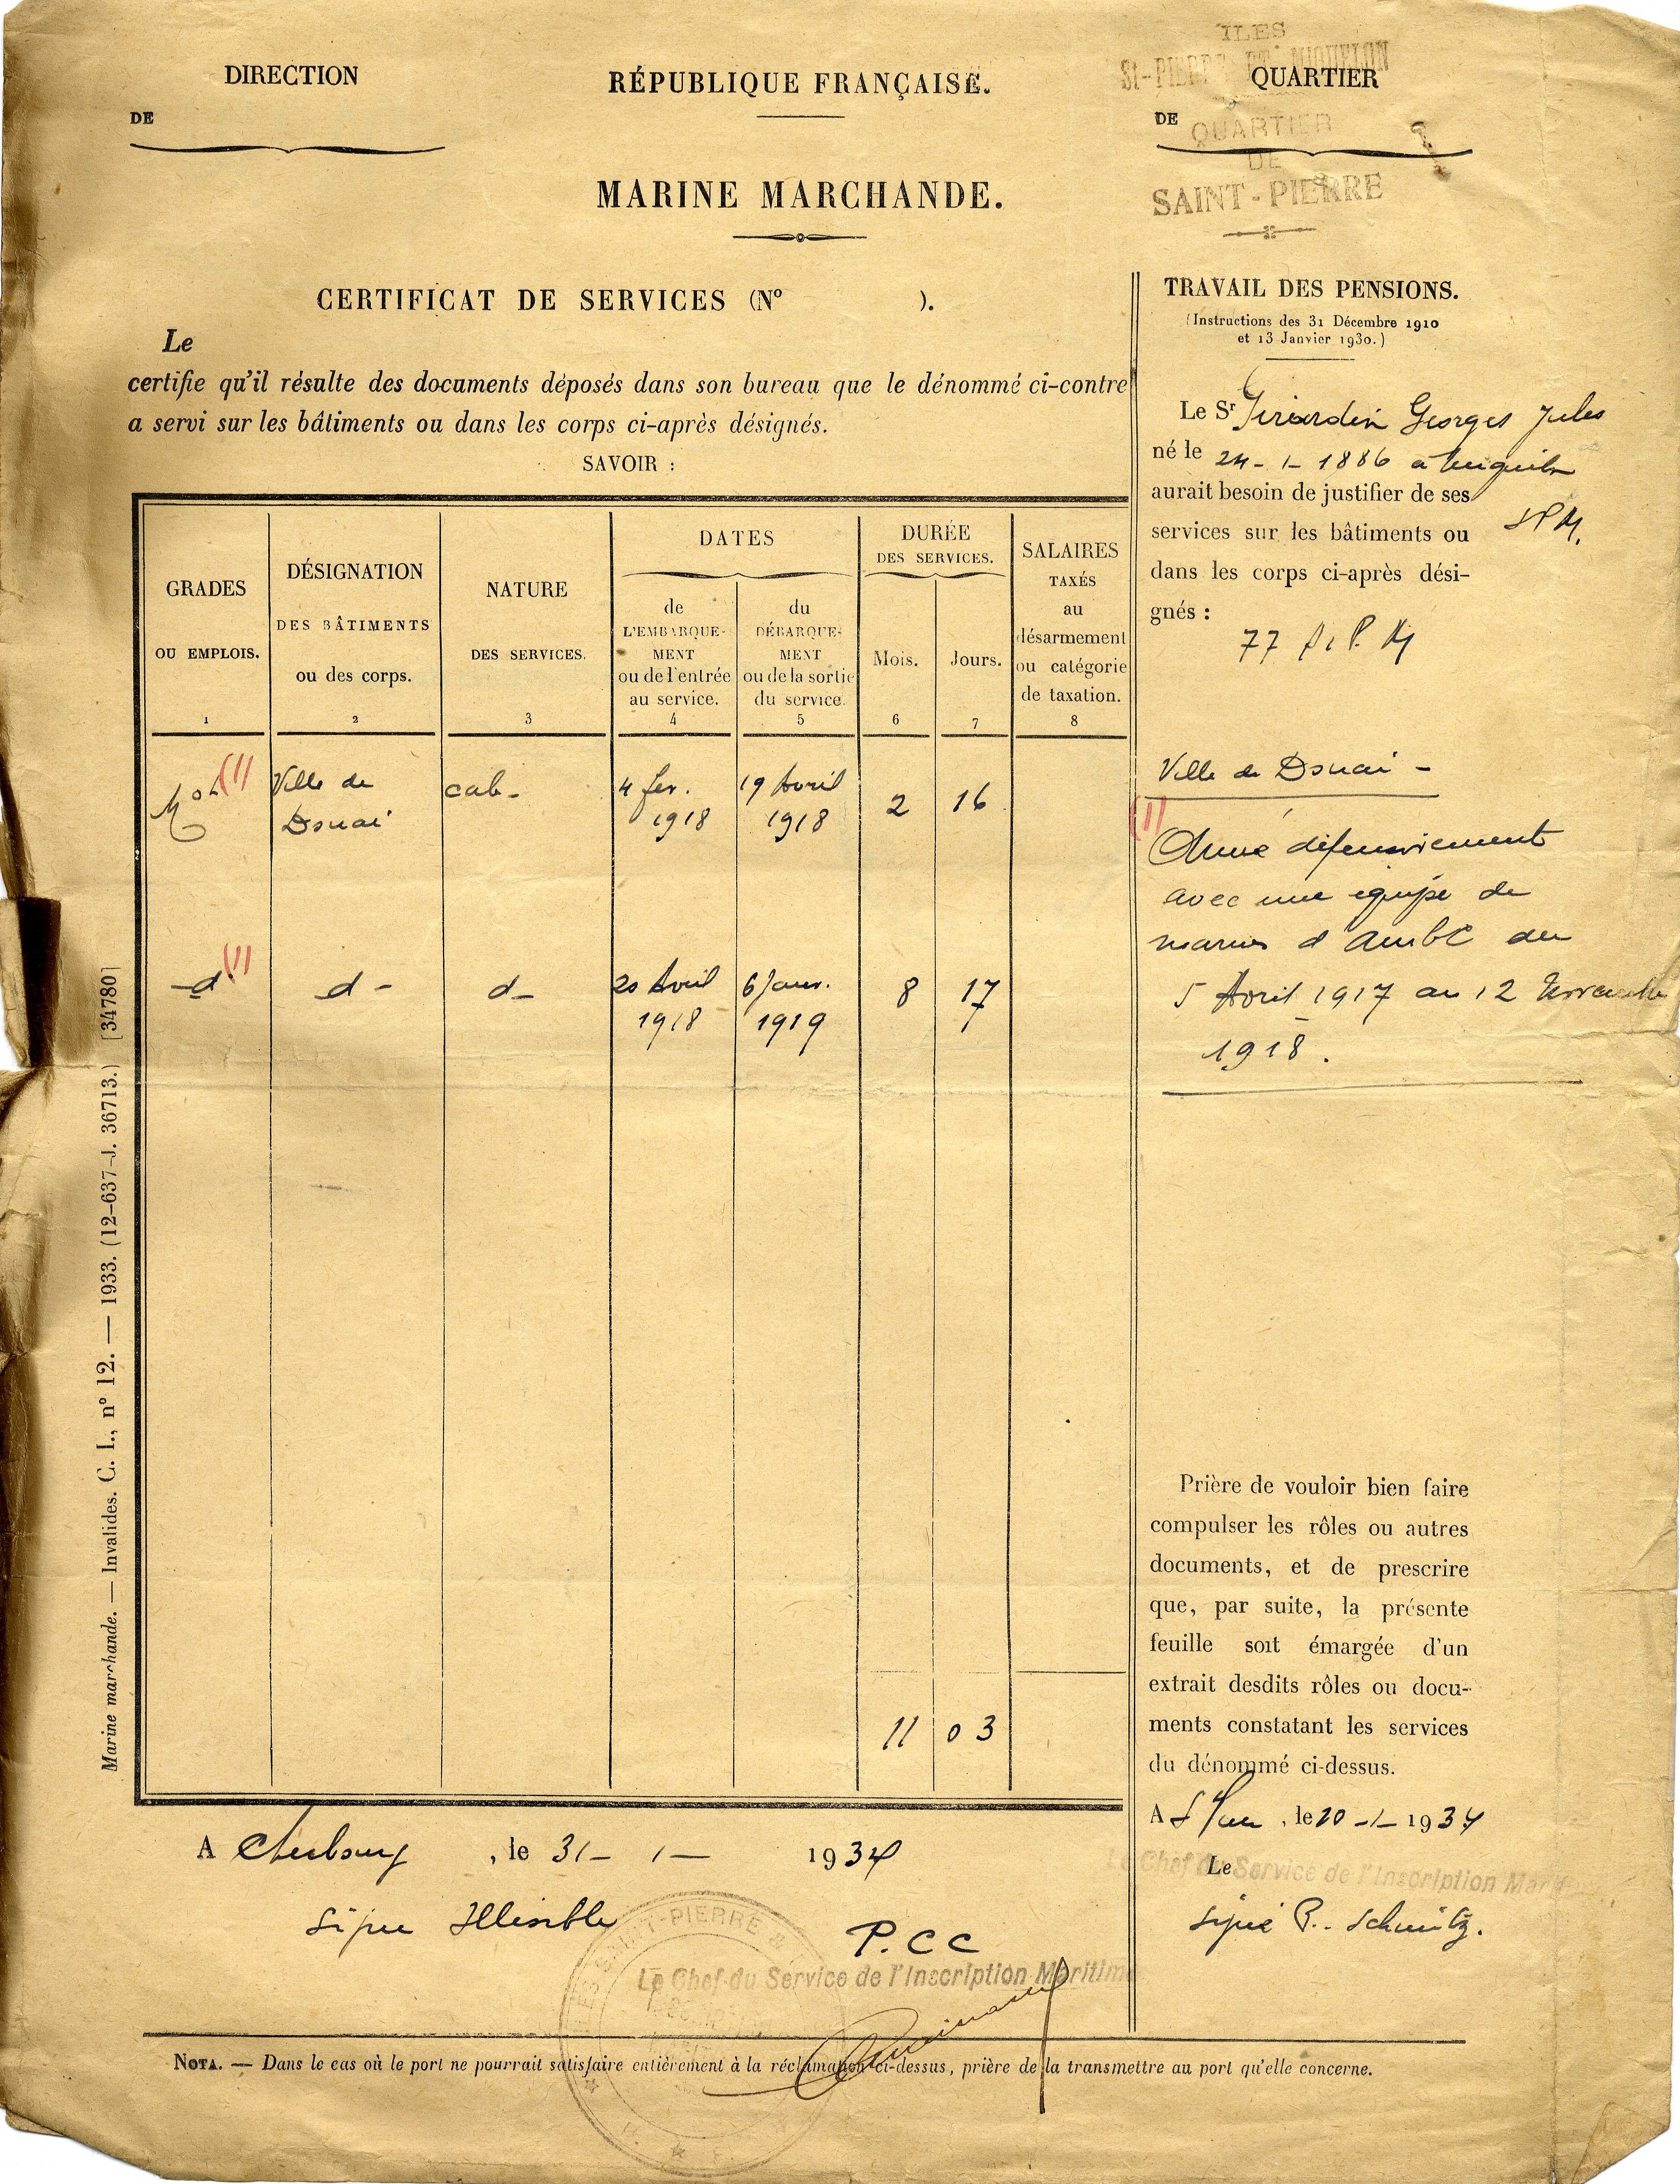 DIRECTION
DE
RÉPUBLIQUE FRANÇAISE.
MARINE MARCHANDE.
ILES
St-PIERRE ET MIQUELON
QUARTIER
DE
QUARTIER
DE
SAINT-PIERRE
CERTIFICAT DE SERVICES (N° ).
Le
certifie qu'il résulte des documents déposés dans son bureau que le dénommé ci-contre
a servi sur les bâtiments ou dans les corps ci-après désignés.
SAVOIR :
GRADES
OU EMPLOIS.
1
DÉSIGNATION
DES BÂTIMENTS
ou des corps.
2
NATURE
DES SERVICES.
3
DATES
de
L'EMBARQUE-
MENT
ou de l'entrée
au service.
4
du
DÉBARQUE-
MENT
ou de la sortie
du service.
5
DURÉE
DES SERVICES.
Mois.
6
Jours.
7
SALAIRES
TAXÉS
au
désarmement
ou catégorie
de taxation.
8
Mot (1) Ville de Douai cab- 4 fev. 1918 19 Avril 1918 2 16
-d- (1) d- d- 20 Avril 1918 6 Janv. 1919 8 17
11 03
A Cherbourg, le 31-1- 1934
Signé Illisible
P.CC
Le Chef du Service de l'Inscription Maritime
TRAVAIL DES PENSIONS.
(Instructions des 31 Décembre 1910
et 13 Janvier 1930.)
Le Sr Girardin Georges Jules
né le 24-1-1886 à Miquelon
SPM.
aurait besoin de justifier de ses
services sur les bâtiments ou
dans les corps ci-après dési-
gnés :
77 S.P.M
Ville de Douai -
(1)
Armé défensivement
avec une équipe de
marins d'AMBC du
5 Avril 1917 au 12 Novembre
1918.
Prière de vouloir bien faire
compulser les rôles ou autres
documents, et de prescrire
que, par suite, la présente
feuille soit émargée d'un
extrait desdits rôles ou docu-
ments constatant les services
du dénommé ci-dessus.
A , le 20-1-1934
Le
Le Chef du Service de l'Inscription Maritime
signé P. Schmitz.
NOTA. — Dans le cas où le port ne pourrait satisfaire entièrement à la réclamation ci-dessus, prière de la transmettre au port qu'elle concerne.
Marine marchande. — Invalides. C. I., n° 12. — 1933. (12-637-J. 36713.) [34780]